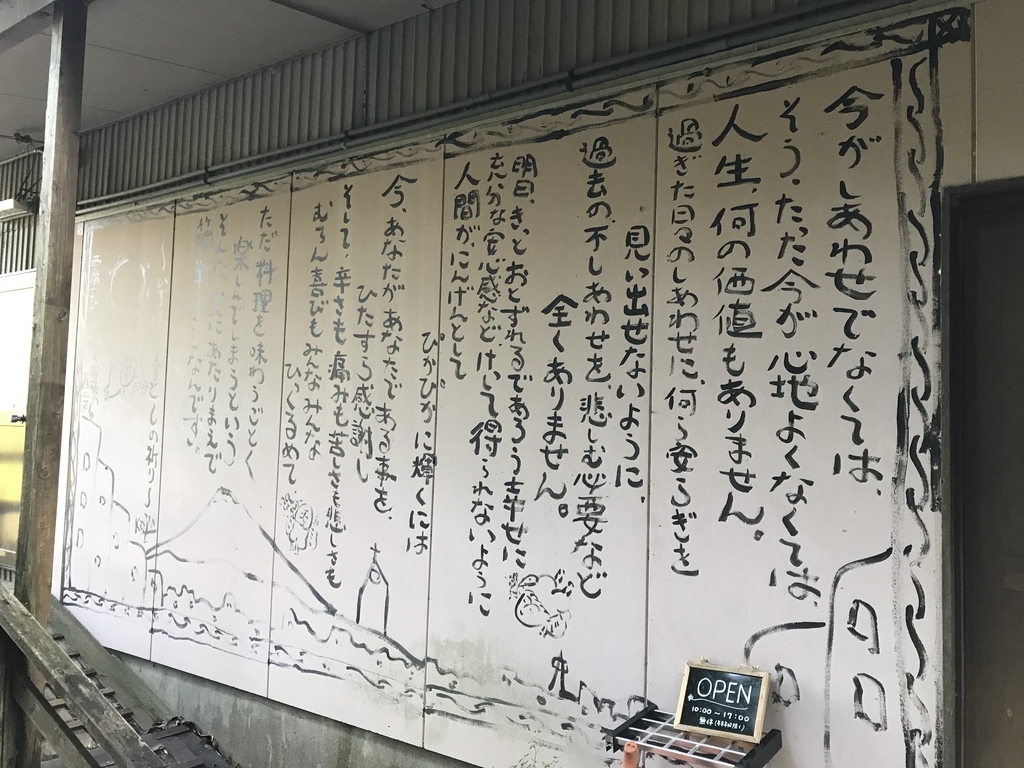 今がしあわせでなくては、
そう、たった今が心地よくなくては、
人生、何の価値もありません。
過ぎた日々のしあわせに、何ら安らぎを
見い出せないように、
過去の、不しあわせを、悲しむ必要など
全くありません。
明日、きっとおとずれるであろう幸せに
充分な安心感など、けっして得られないように
人間が、にんげんとして
ぴかぴかに輝くには
今、あなたがあなたである事を、
ひたすら感謝し
そして、辛さも痛みも苦しさも悲しさも
むろん喜びもみなみんな
ひっくるめて
ただ料理を味わうごとく
楽しんでしまうという
そんな
あたりまえで
なんです。
の祈り
OPEN
10:00~17:00
無休